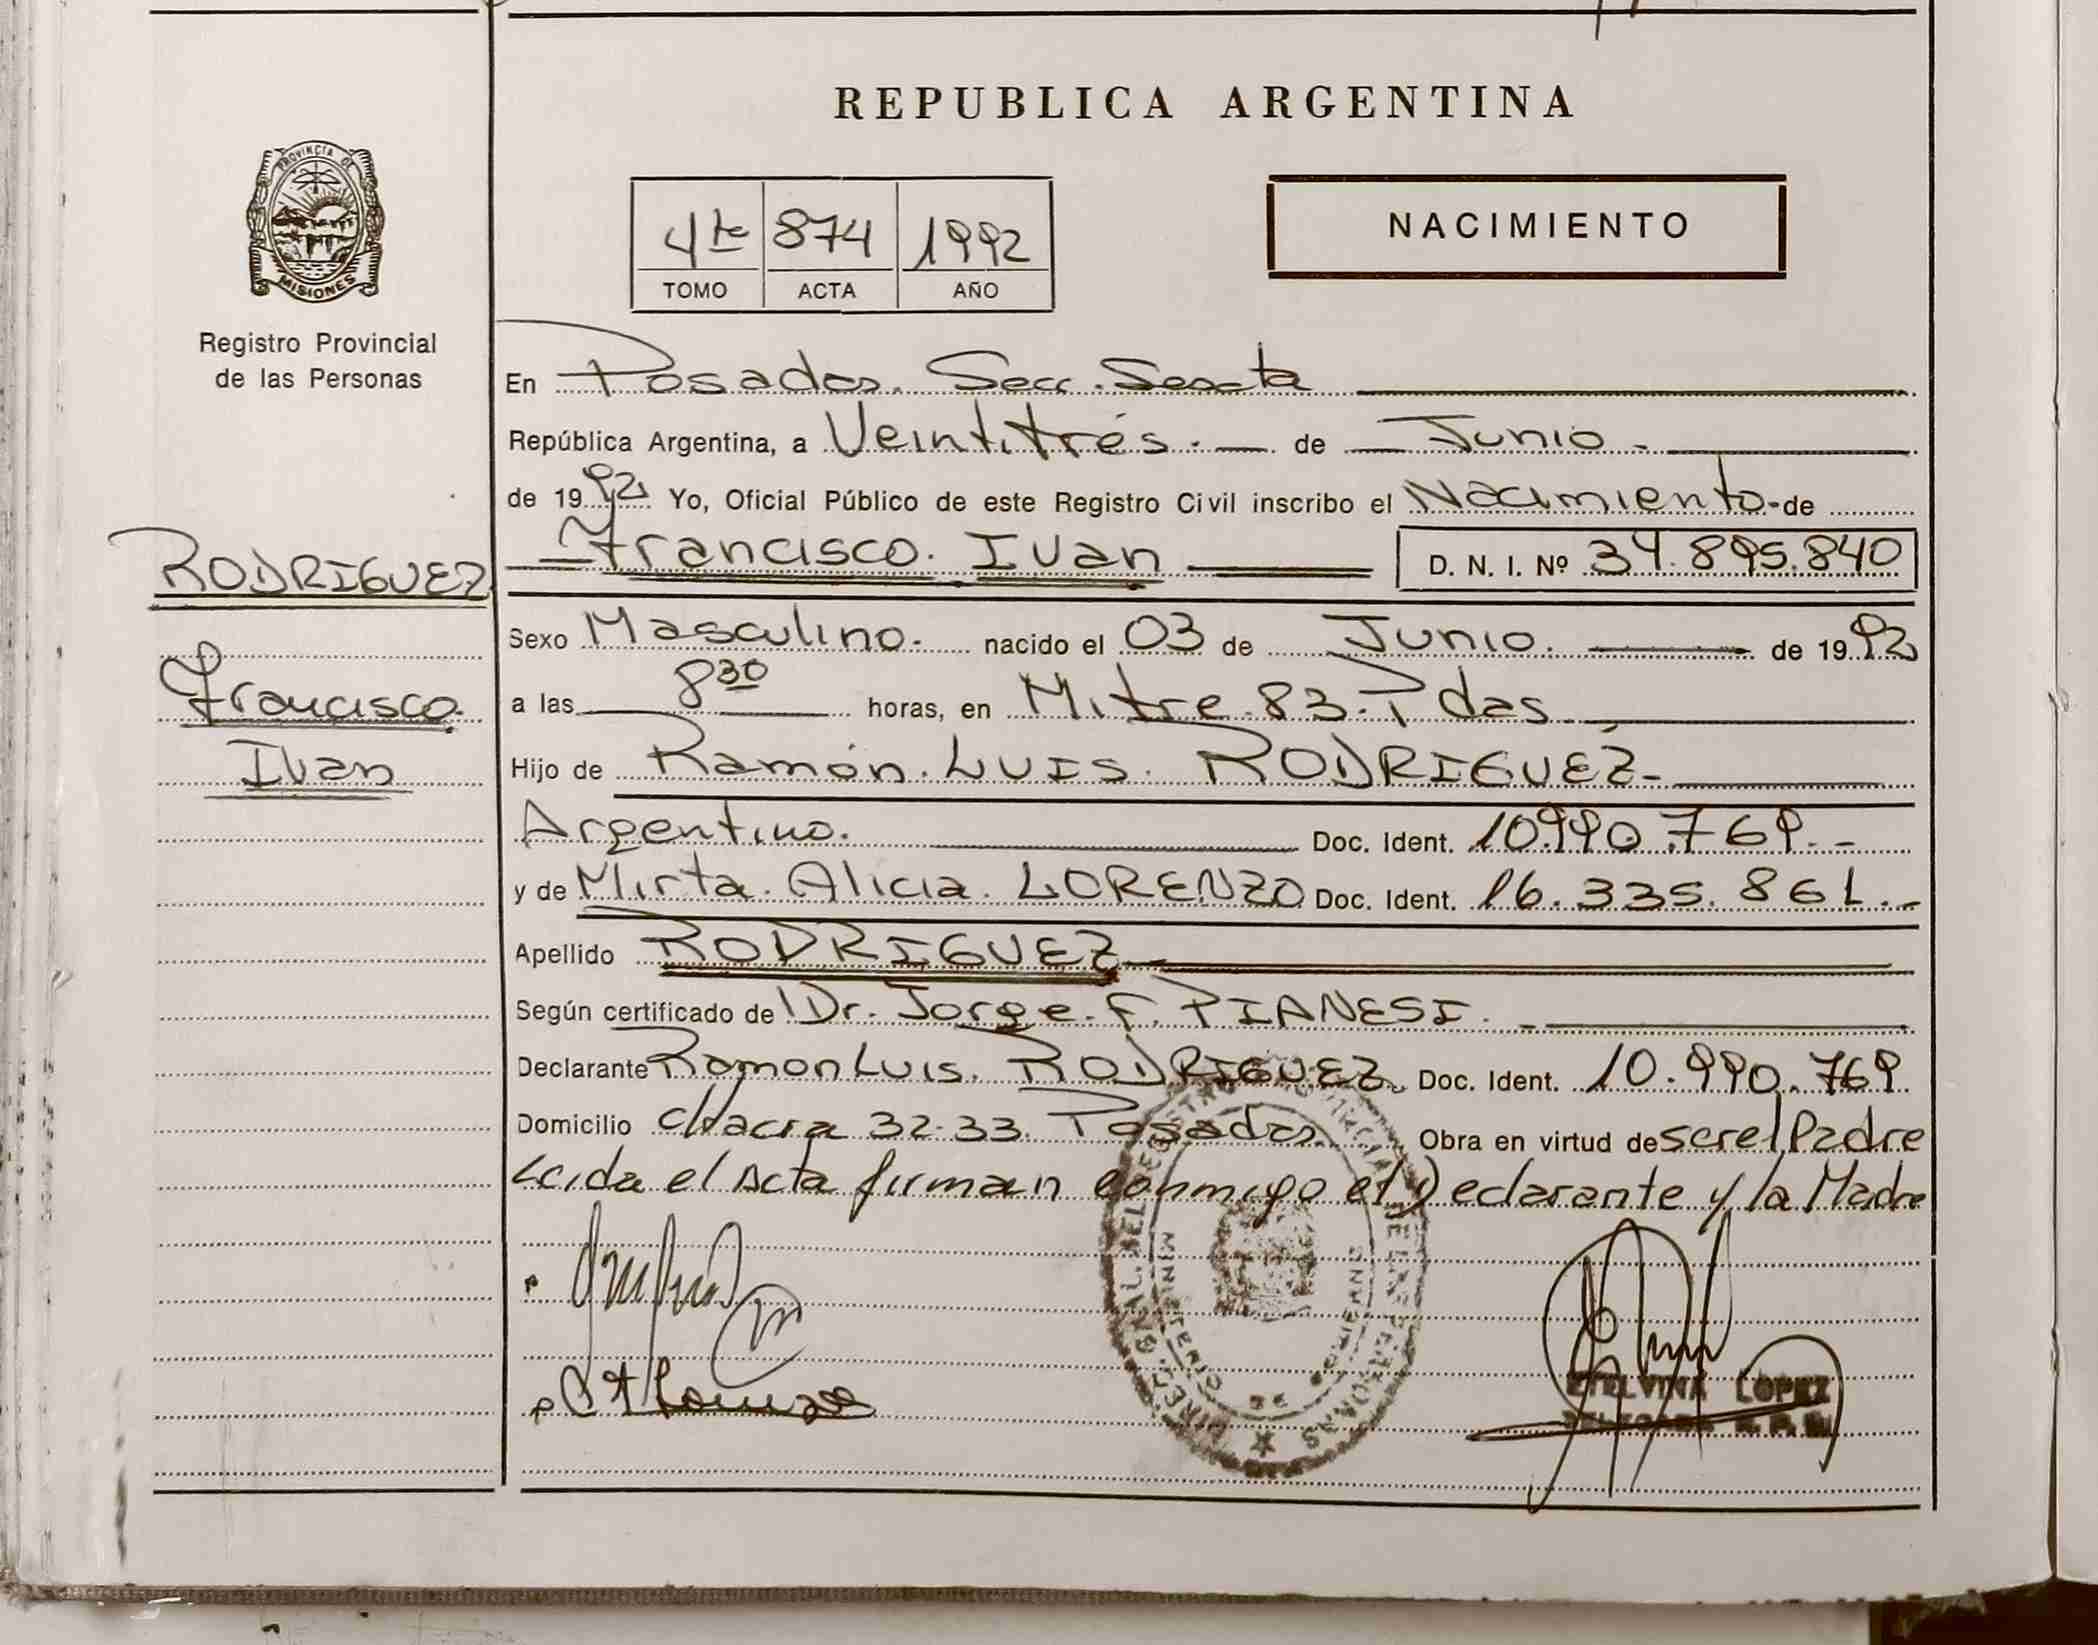 REPUBLICA ARGENTINA
PROVINCIA DE
MISIONES
Registro Provincial
de las Personas
4to 874 1992
TOMO ACTA AÑO
NACIMIENTO
En Posadas. Secc. Sexta
República Argentina, a Veintitrés.- de Junio.-
de 1992 Yo, Oficial Público de este Registro Civil inscribo el Nacimiento-de
Francisco. Ivan D. N. I. Nº 34.895.840
RODRIGUEZ
Francisco.
Ivan
Sexo Masculino. nacido el 03 de Junio. de 1992
a las 8 30 horas, en Mitre.83.Pdas.
Hijo de Ramón.LUIS. RODRIGUEZ-
Argentino. Doc. Ident. 10.990.769.-
y de Mirta.Alicia.LORENZO Doc. Ident. 16.335.861.-
Apellido RODRIGUEZ
Según certificado de Dr. Jorge.F. PIANESI.-
Declarante Ramon LUIS. RODRIGUEZ. Doc. Ident. 10.990.769
Domicilio chacra 32-33. Posadas. Obra en virtud de ser el Padre
Leida el Acta firman conmigo el Declarante y la Madre
ETELVINA LOPEZ